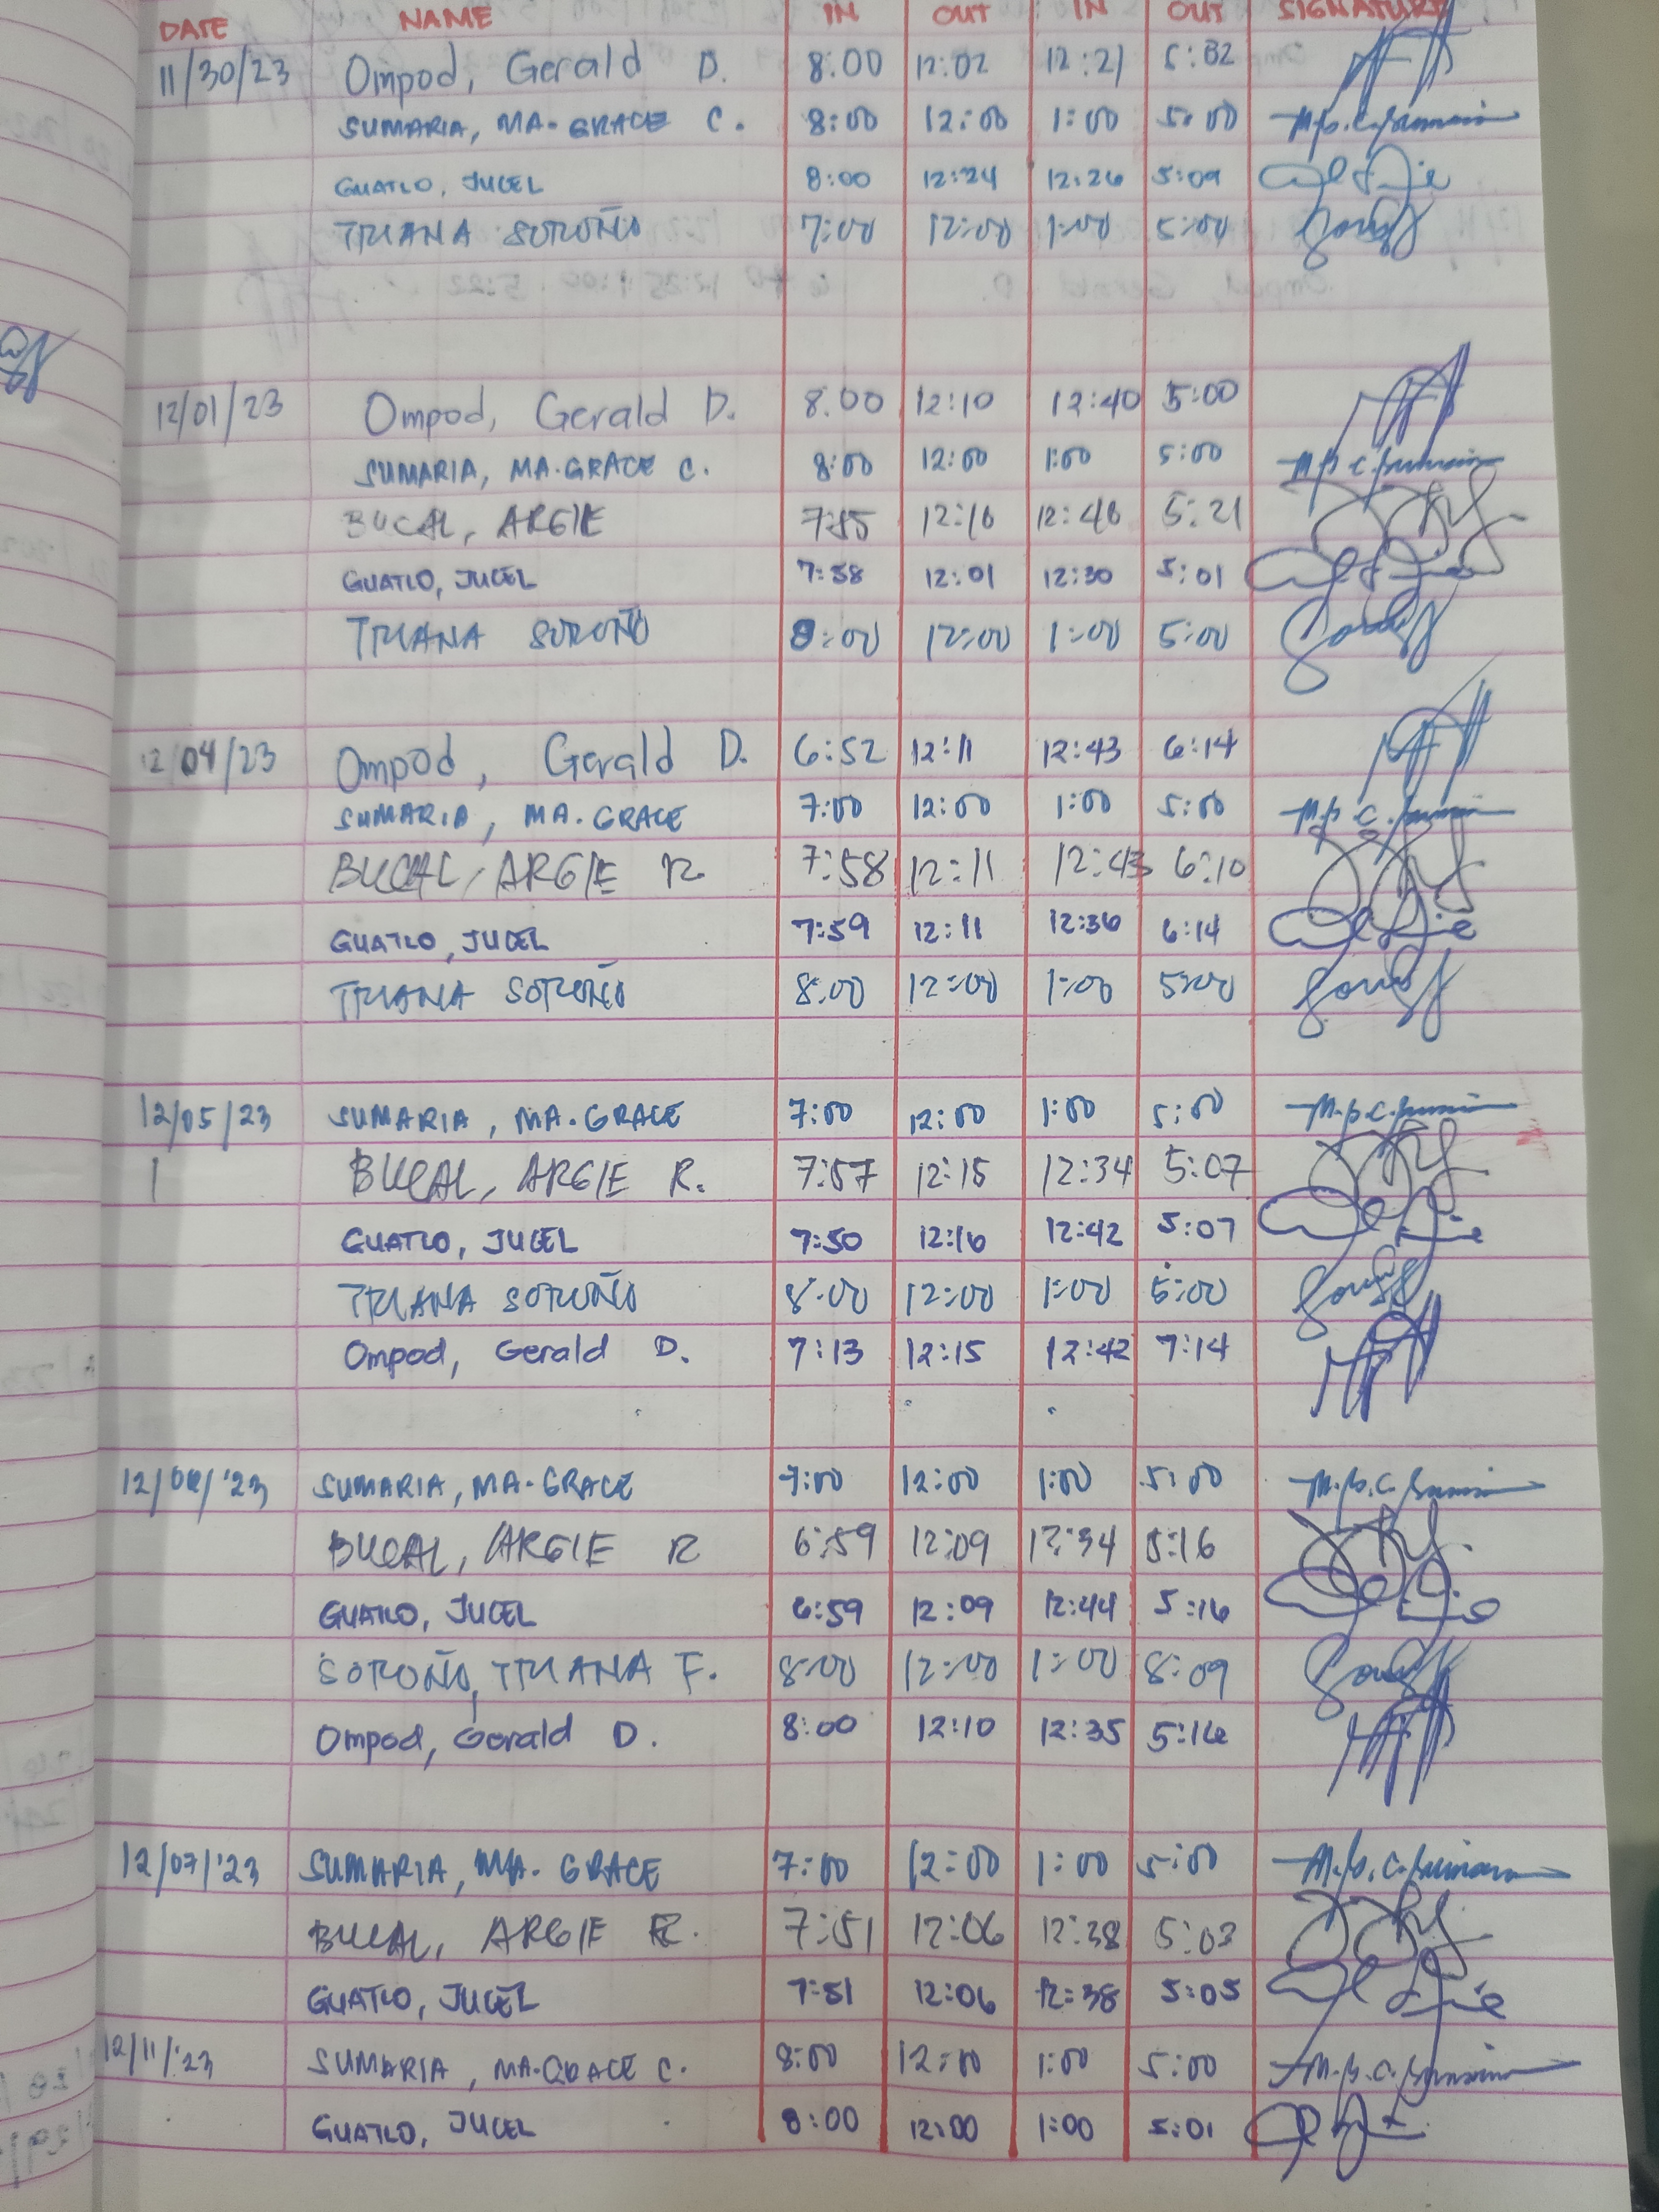 DATE NAME IN OUT IN OUT SIGNATURE
11/30/23 Ompod, Gerald D. 8.00 12:02 12:21 5:02
SUMARIA, MA. GRACE C. 8:00 12:00 1:00 5:00
GUATLO, JUCEL 8:00 12:24 12:26 5:09
TRIANA SOROÑO 7:00 12:00 1:00 5:00
12/01/23 Ompod, Gerald D. 8.00 12:10 12:40 5:00
SUMARIA, MA. GRACE C. 8:00 12:00 1:00 5:00
BUCAL, ARGIE 12:16 12:46 5:21
GUATLO, JUCEL 7:58 12:01 12:30 5:01
TRIANA SOROÑO 8:00 12:00 1:00 5:00
12/04/23 Ompod, Gerald D. 6:52 12:11 12:43 6:14
SUMARIA, MA. GRACE 7:00 12:00 1:00 5:00
BUCAL, ARGIE R 7:58 12:11 12:43 6:10
GUATLO, JUCEL 7:59 12:11 12:36 6:14
TRIANA SOROÑO 8:00 12:00 1:00 5:00
12/05/23 SUMARIA, MA. GRACE 7:00 12:00 1:00 5:00
BUCAL, ARGIE R. 7:57 12:15 12:34 5:07
GUATLO, JUCEL 7:50 12:16 12:42 5:07
TRIANA SOROÑO 8:00 12:00 1:00 5:00
Ompod, Gerald D. 7:13 12:15 12:42 7:14
12/06/'23 SUMARIA, MA. GRACE 7:00 12:00 1:00 5:00
BUCAL, ARGIE R 6:59 12:09 12:34 5:16
GUATLO, JUCEL 6:59 12:09 12:44 5:16
SOROÑO, TRIANA F. 8:00 12:00 1:00 8:09
Ompod, Gerald D. 8:00 12:10 12:35 5:16
12/07/'23 SUMARIA, MA. GRACE 7:00 12:00 1:00 5:00
BUCAL, ARGIE R. 7:51 12:06 12:38 5:03
GUATLO, JUCEL 7:51 12:06 12:38 5:05
12/11/'23 SUMARIA, MA. GRACE C. 8:00 12:00 1:00 5:00
GUATLO, JUCEL 8:00 12:00 1:00 5:01